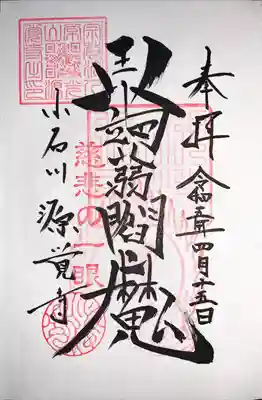 奉拝 令和五年四月十五日
蒟蒻閻魔
慈悲の一眼
小石川 源覚寺